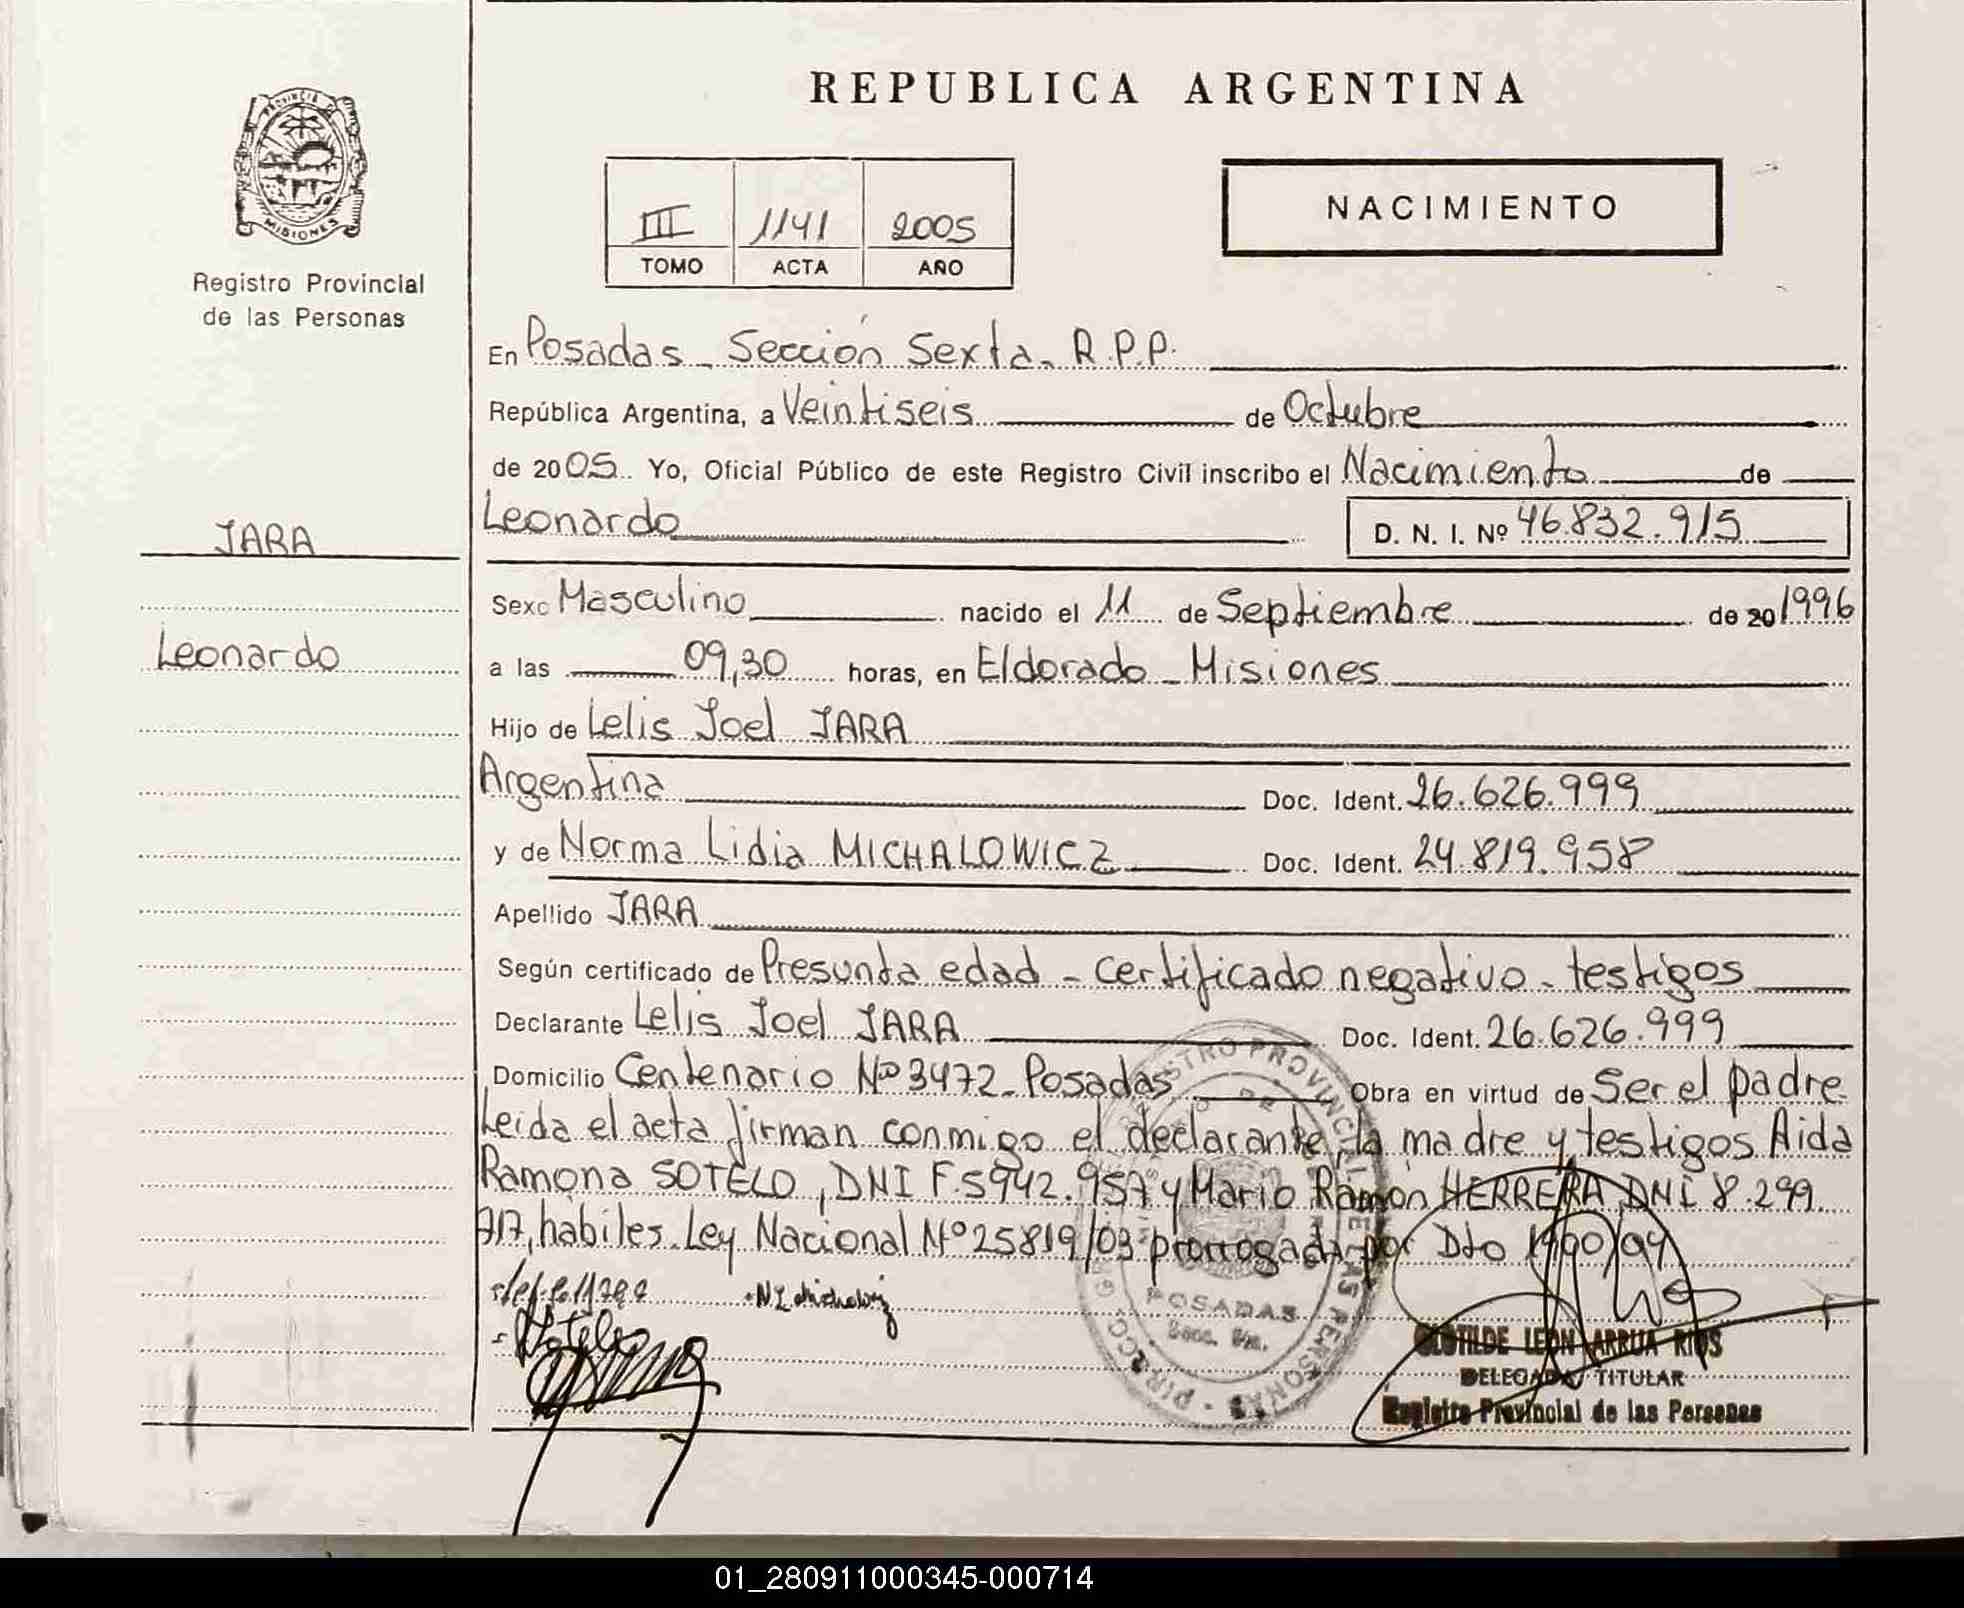 REPUBLICA ARGENTINA
PROVINCIA DE
MISIONES
Registro Provincial
de las Personas
III 1141 2005
TOMO ACTA AÑO
NACIMIENTO
En Posadas - Sección Sexta - R.P.P.
República Argentina, a Veintiseis de Octubre
de 2005. Yo, Oficial Público de este Registro Civil inscribo el Nacimiento de
JARA
Leonardo D. N. I. Nº 46.832.915
Sexo Masculino nacido el 11 de Septiembre de 20 1996
Leonardo
a las 09,30 horas, en Eldorado - Misiones
Hijo de Lelis Joel JARA
Argentina Doc. Ident. 26.626.999
y de Norma Lidia MICHALOWICZ Doc. Ident. 24.819.958
Apellido JARA
Según certificado de Presunta edad - certificado negativo - testigos
Declarante Lelis Joel JARA Doc. Ident. 26.626.999
Domicilio Centenario Nº 3472 - Posadas Obra en virtud de Ser el padre
Leida el acta firman conmigo el declarante, la madre y testigos Aida
Ramona SOTELO, DNI F.5942.957 y Mario Ramón HERRERA, DNI 8.299.
717, habiles. Ley Nacional Nº 25819/03 prorrogada por Dto 1990/04
POSADAS
Secc. 6ta.
CLOTILDE LEON ARRUA RIOS
DELEGADA TITULAR
Registro Provincial de las Personas
01_280911000345-000714